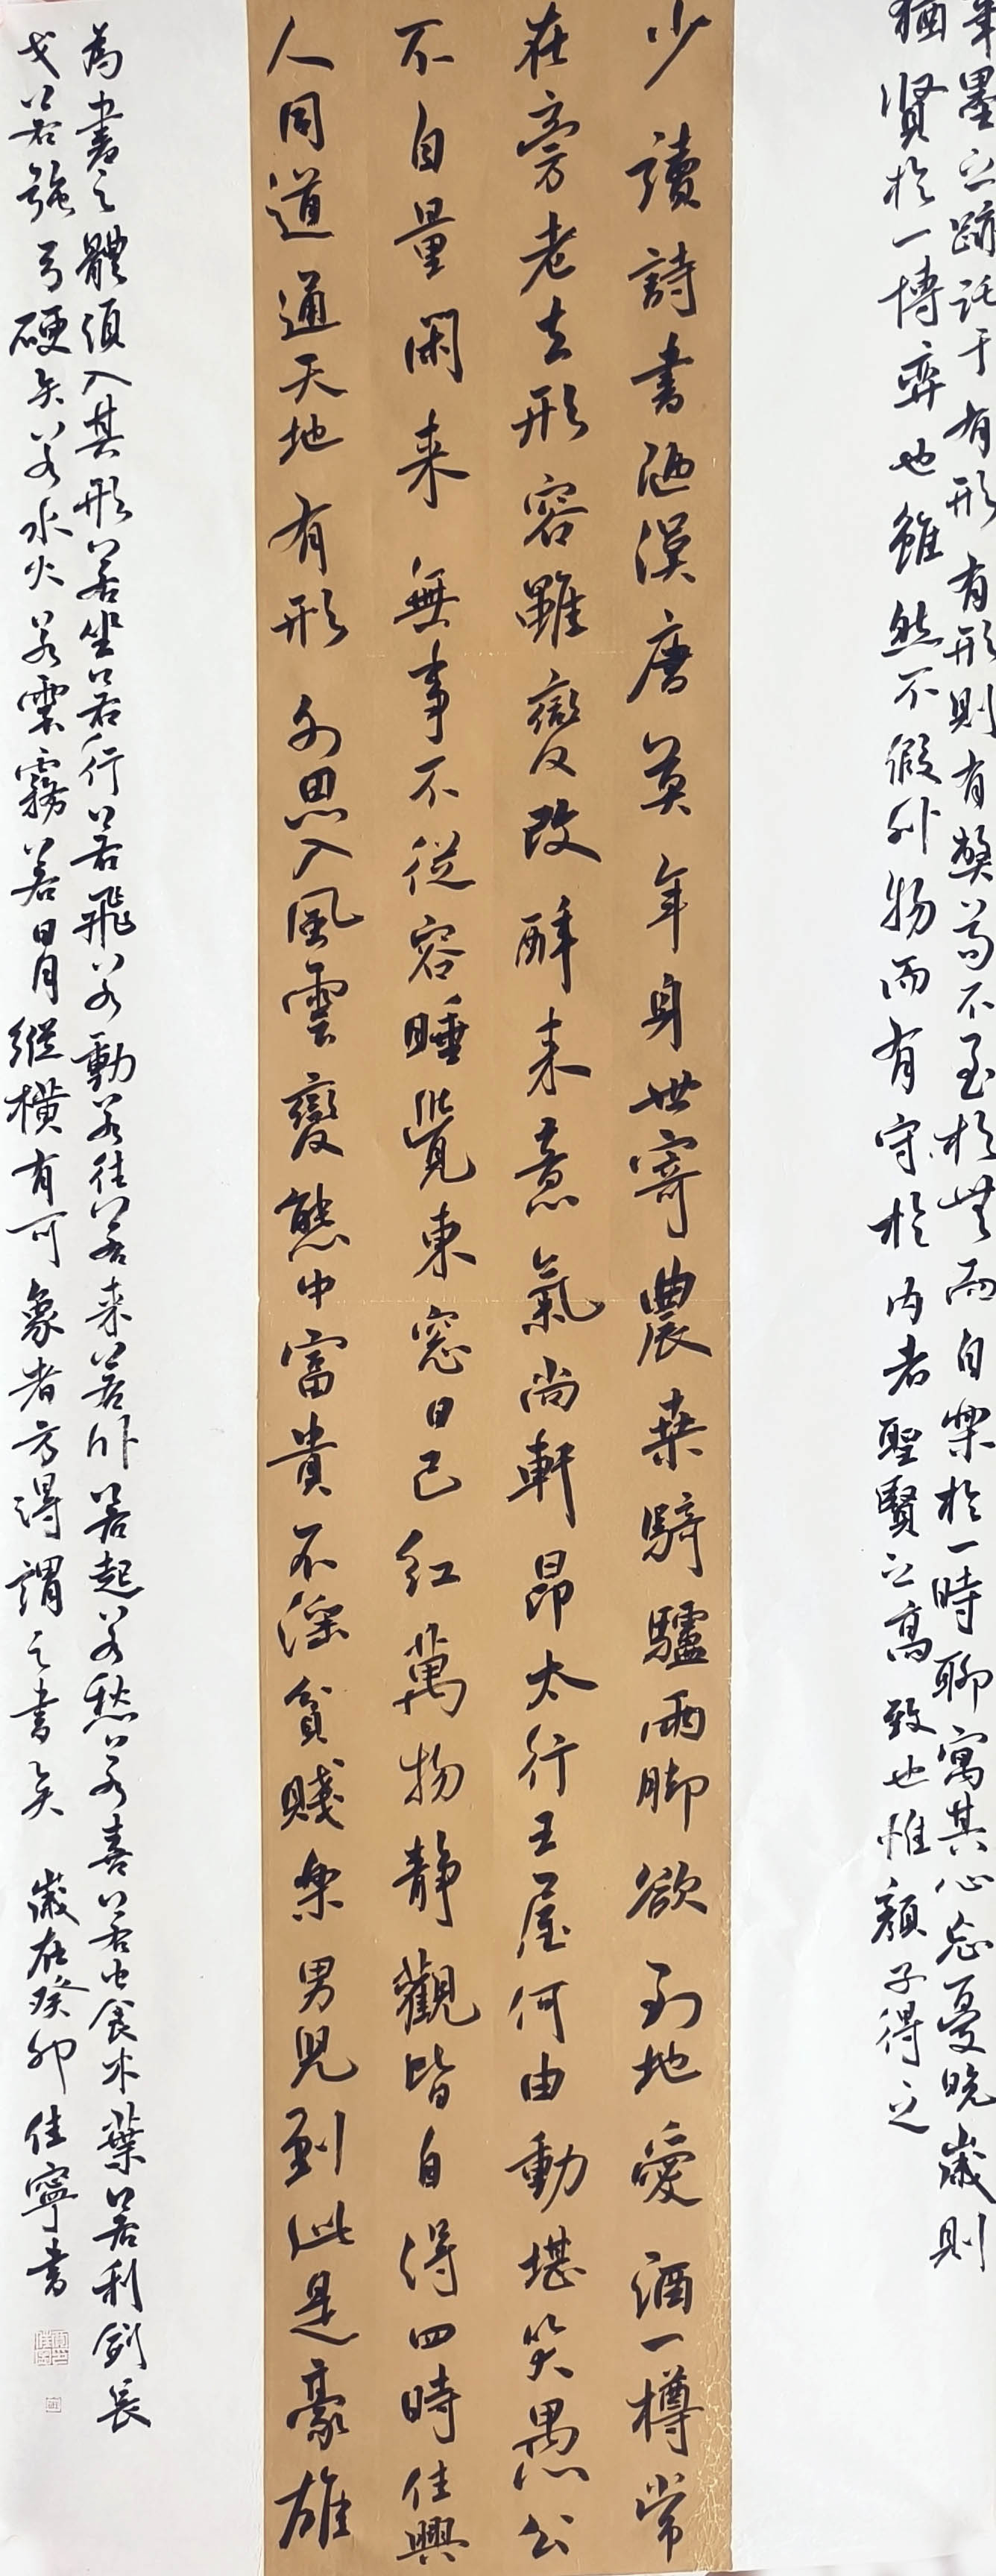 筆墨之跡託于有形有形則有弊苟不至於無而自樂於一時聊寓其心忘憂晚歲則
猶賢於一博弈也雖然不假外物而有守於內者聖賢之高致也惟顏子得之
少讀詩書陋漢唐莫年身世寄農桑騎驢兩脚欲到地愛酒一樽常
在旁老去形容雖變改醉来意氣尚軒昂太行王屋何由動堪笑愚公
不自量閑来無事不從容睡覺東窓日已红萬物静觀皆自得四時佳興
人同道通天地有形外思入風雲變態中富貴不淫貧賤樂男兒到此是豪雄
為書之體須入其形若坐若行若飛若動若往若来若卧若起若愁若喜若虫食木葉若利劍長
戈若强弓硬矢若水火若雲霧若日月縱橫有可象者方得謂之書矣 歲在癸卯佳寧書